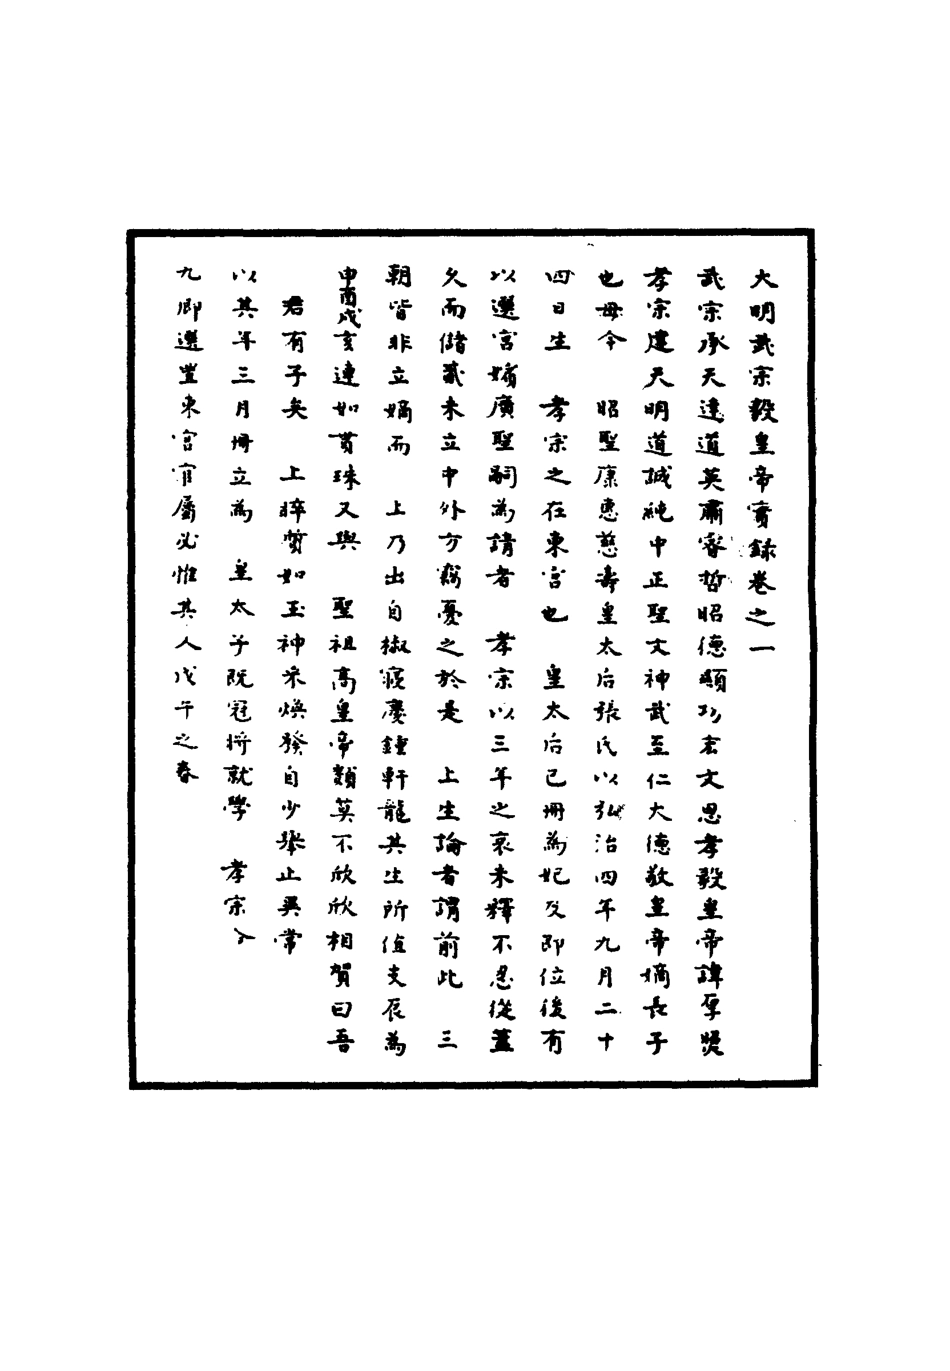 大明武宗毅皇帝實錄卷之一
武宗承天達道英肅睿哲昭德顯功宏文思孝毅皇帝諱厚㷟
孝宗建天明道誠純中正聖文神武至仁大德敬皇帝嫡長子
也母今　昭聖康惠慈壽皇太后張氏以弘治四年九月二十
四日生　孝宗之在東宮也　皇太后已冊為妃及即位後有
以選宮嬪廣聖嗣為請者　孝宗以三年之哀未釋不忍從蓋
久而儲貳未立中外方竊憂之於是　上生論者謂前此　三
朝皆非立嫡而　上乃出自椒寢慶鍾軒龍其生所值支辰為
申酉戌亥連如貫珠又與　聖祖高皇帝類莫不欣欣相賀曰吾
君有子矣　上睟質如玉神采煥發自少舉止異常
以其年三月冊立為　皇太子既冠將就學　孝宗
九即選豐東宮官屬必惟其人戊午之春